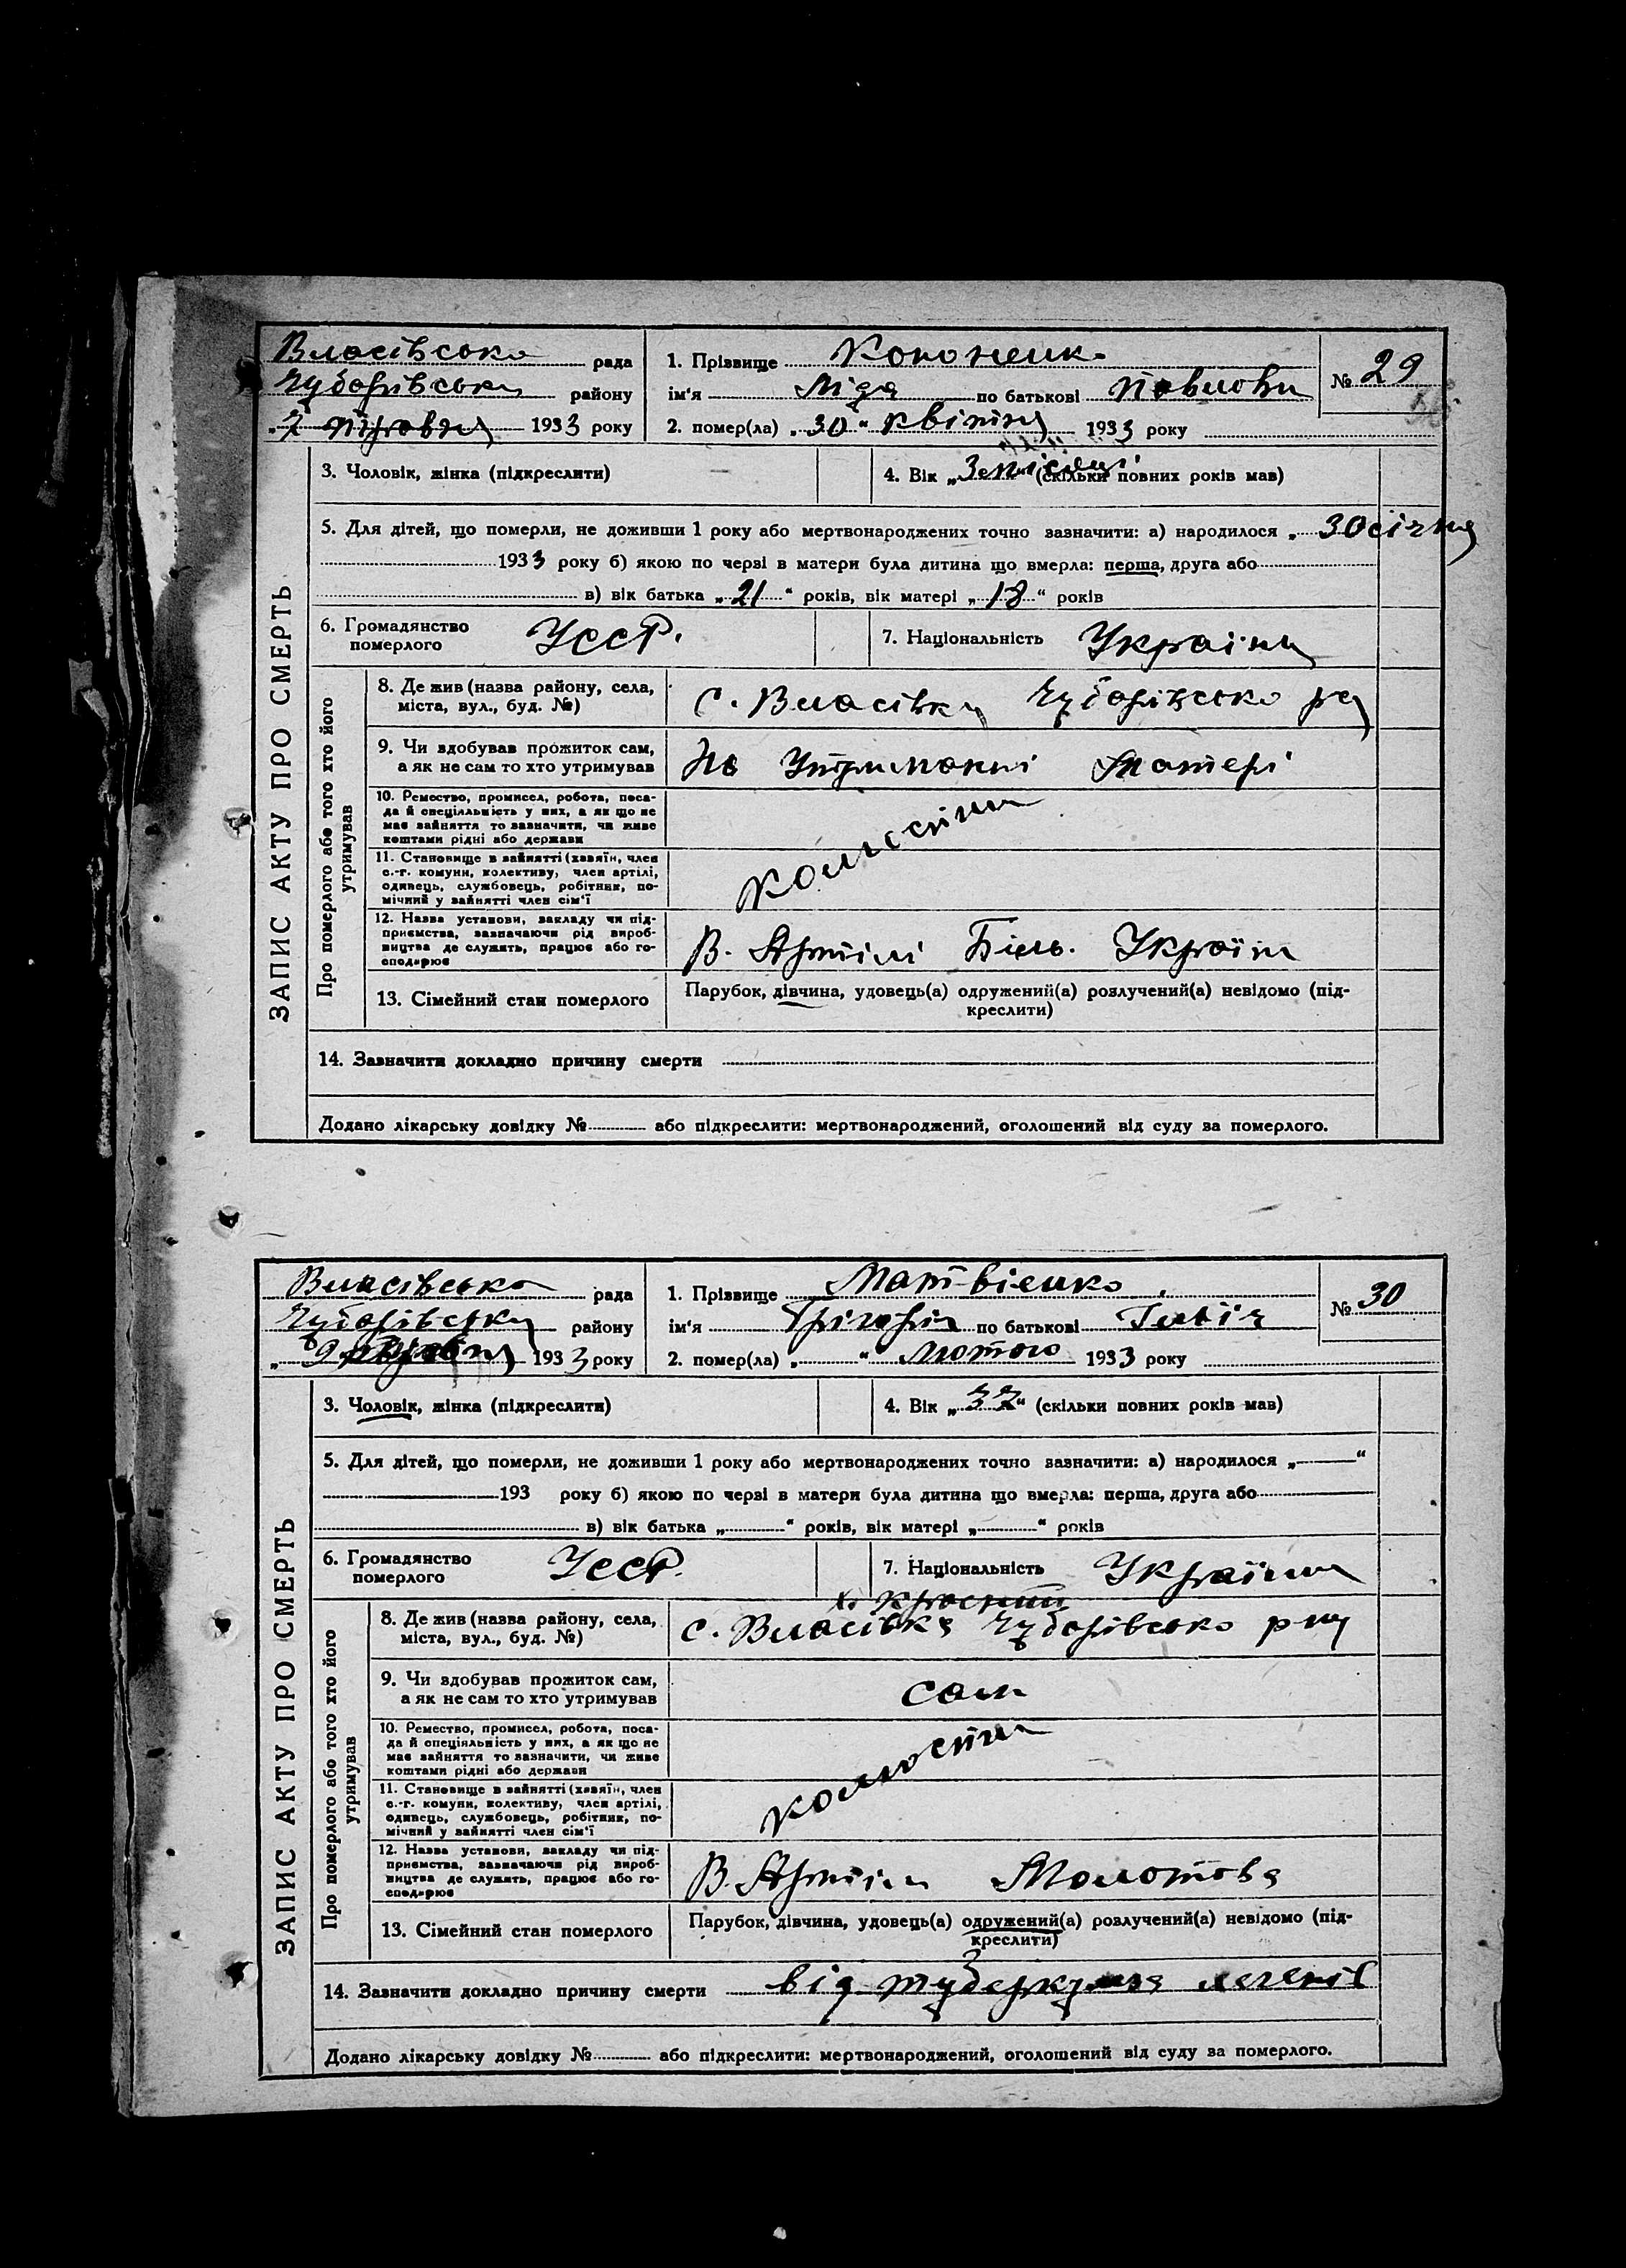 Власівсько рада
Чубарівську району
„7 травня 1933 року
1. Прізвище Кононенко
ім'я Ліда по батькові Повловн
2. помер(ла) „30“ квітня 1933 року
№ 29
ЗАПИС АКТУ ПРО СМЕРТЬ
3. Чоловік, жінка (підкреслити)
4. Вік „3 місяці“ (скільки повних років мав)
5. Для дітей, що померли, не доживши 1 року або мертвонароджених точно зазначити: а) народилося „30 січня
1933 року б) якою по черзі в матери була дитина що вмерла: перша, друга або
в) вік батька „21“ років, вік матері „18“ років
6. Громадянство
померлого
УССР.
7. Національність Україн
Про померлого або того хто його
утримував
8. Де жив (назва району, села,
міста, вул., буд. №)
с. Власівку Чубарівсько р
9. Чи здобував прожиток сам,
а як не сам то хто утримував
На утриманні матері
10. Ремество, промисел, робота, поса-
да й спеціяльність у них, а як що не
має зайняття то зазначити, чи живе
коштами рідні або держави
11. Становище в зайнятті (хазяїн, член
с.-г. комуни, колективу, член артілі,
одинець, службовець, робітник, по-
мічний у зайнятті член сім'ї
колгоспник
12. Назва установи, закладу чи під-
приємства, зазначаючи рід вироб-
ництва де служить, працює або го-
сподарює
В. Артілі Біль. Україн
13. Сімейний стан померлого
Парубок, дівчина, удовець(а) одружений(а) розлучений(а) невідомо (під-
креслити)
14. Зазначити докладно причину смерти
Додано лікарську довідку № або підкреслити: мертвонароджений, оголошений від суду за померлого.
Власівсько рада
Чубарівську району
„9 1933 року
1. Прізвище Матвіенко
ім'я Грігорій по батькові
2. помер(ла) „ “ лютого 1933 року
№ 30
ЗАПИС АКТУ ПРО СМЕРТЬ
3. Чоловік, жінка (підкреслити)
4. Вік „37“ (скільки повних років мав)
5. Для дітей, що померли, не доживши 1 року або мертвонароджених точно зазначити: а) народилося „ “
193 року б) якою по черзі в матери була дитина що вмерла: перша, друга або
в) вік батька „ “ років, вік матері „ “ років
6. Громадянство
померлого
УССР.
7. Національність Україн
Про померлого або того хто його
утримував
8. Де жив (назва району, села,
міста, вул., буд. №)
с. Власівка Чубарівсько рну
9. Чи здобував прожиток сам,
а як не сам то хто утримував
сам
10. Ремество, промисел, робота, поса-
да й спеціяльність у них, а як що не
має зайняття то зазначити, чи живе
коштами рідні або держави
11. Становище в зайнятті (хазяїн, член
с.-г. комуни, колективу, член артілі,
одинець, службовець, робітник, по-
мічний у зайнятті член сім'ї
колгоспник
12. Назва установи, закладу чи під-
приємства, зазначаючи рід вироб-
ництва де служить, працює або го-
сподарює
В. Артіли Молотова
13. Сімейний стан померлого
Парубок, дівчина, удовець(а) одружений(а) розлучений(а) невідомо (під-
креслити)
14. Зазначити докладно причину смерти від туберкульоза легенів
Додано лікарську довідку № або підкреслити: мертвонароджений, оголошений від суду за померлого.